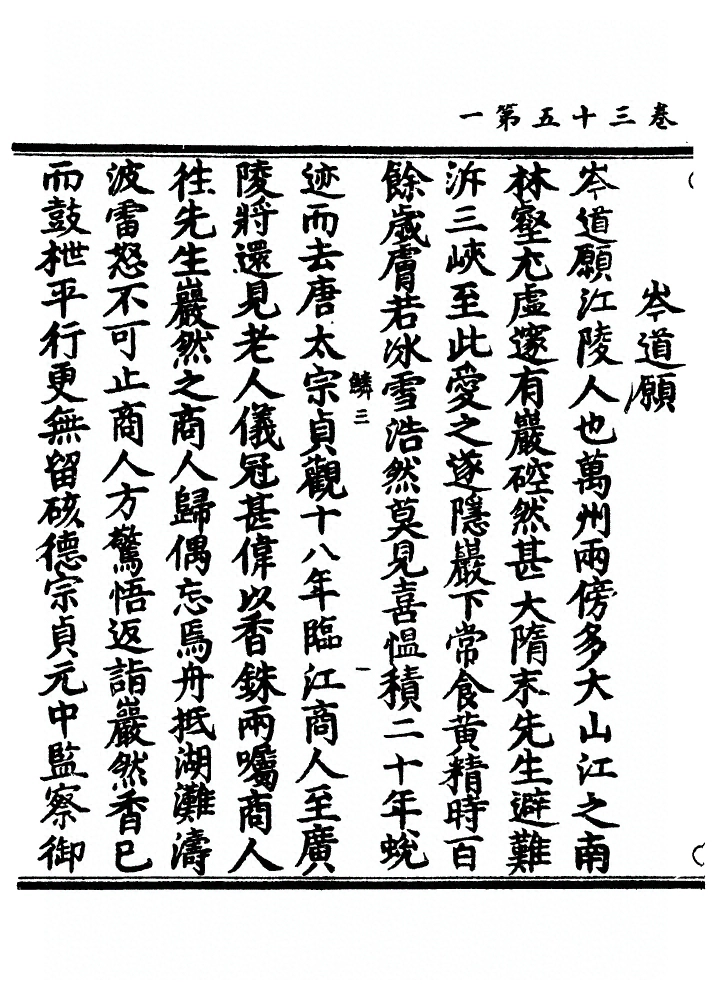 卷三十五第一
岑道願
岑道願江陵人也萬州兩傍多大山江之南
林壑尤虛邃有巖硿然甚大隋末先生避難
泝三峽至此愛之遂隱巖下常食黃精時百
餘歲膚若冰雪浩然莫見喜慍積二十年蛻
鱗三
一
迹而去唐太宗貞觀十八年臨江商人至廣
陵將還見老人儀冠甚偉以香銖兩囑商人
徃先生巖然之商人歸偶忘焉舟抵湖灘濤
波雷怒不可止商人方驚悟返詣巖然香已
而鼓枻平行更無留硋德宗貞元中監察御